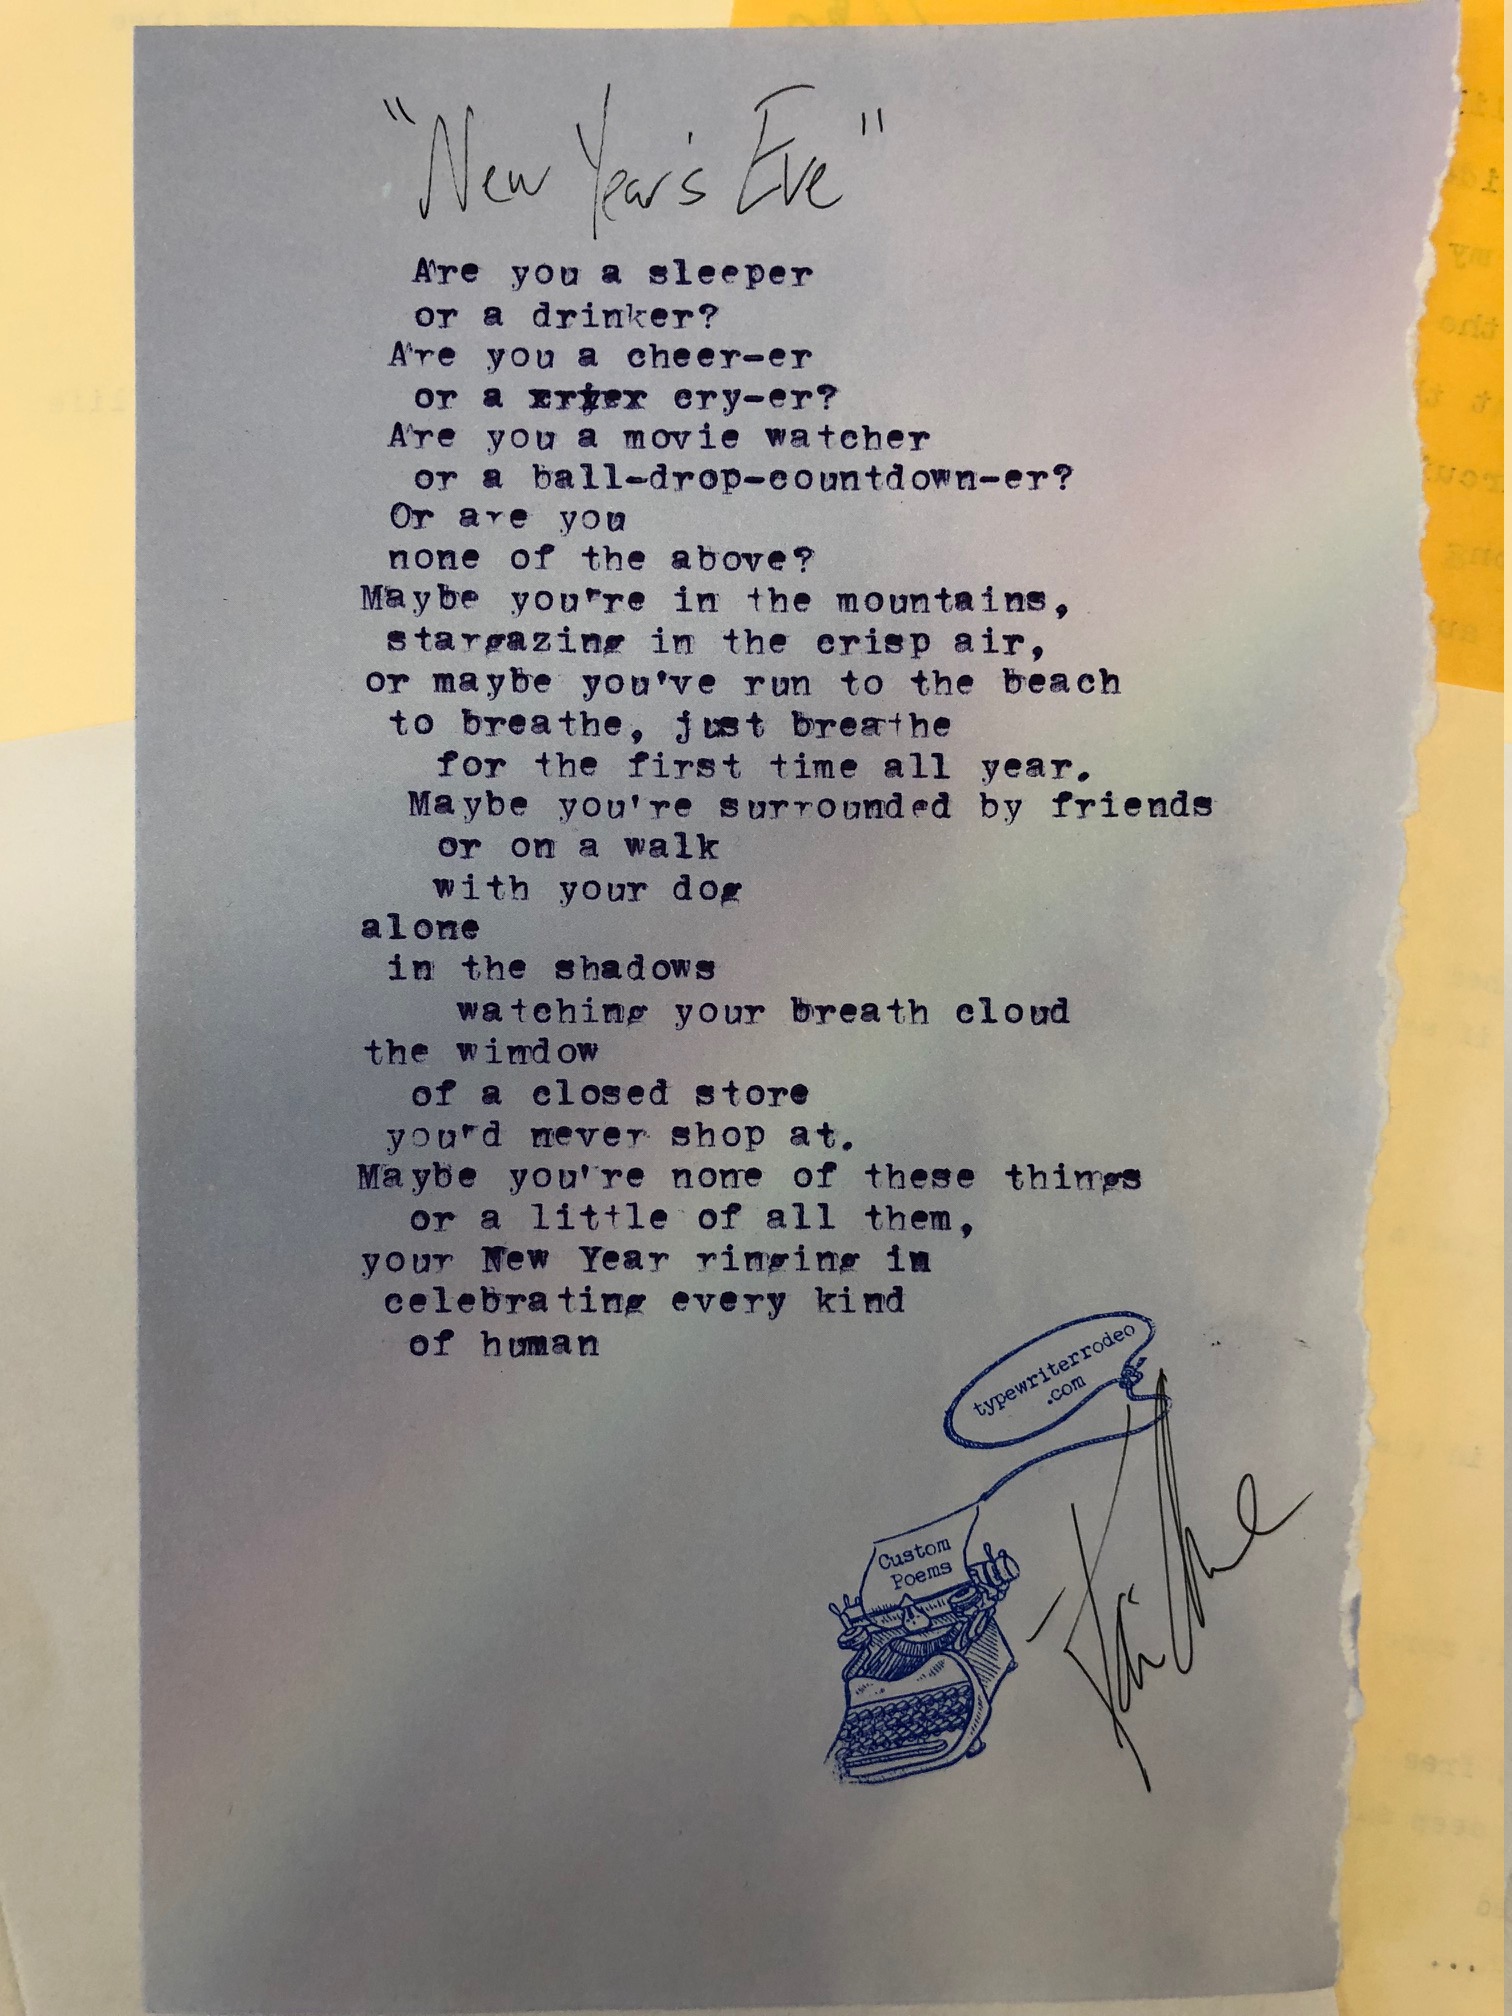 "New Year's Eve"
Are you a sleeper
or a drinker?
Are you a cheer-er
or a cry-er?
Are you a movie watcher
or a ball-drop-countdown-er?
Or are you
none of the above?
Maybe you're in the mountains,
stargazing in the crisp air,
or maybe you've run to the beach
to breathe, just breathe
for the first time all year.
Maybe you're surrounded by friends
or on a walk
with your dog
alone
in the shadows
watching your breath cloud
the window
of a closed store
you'd never shop at.
Maybe you're none of these things
or a little of all them,
your New Year ringing in
celebrating every kind
of human
typewriterrodeo
.com
Custom
Poems